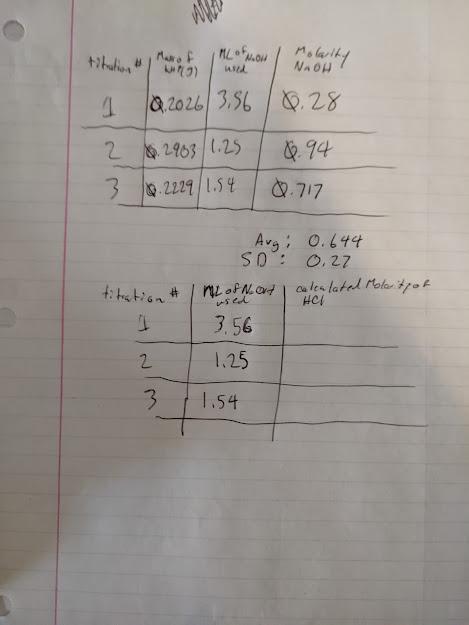 titration # Mass of KHP(g) ML of NaOH used Molarity NaOH
1 0.2026 3.56 0.28
2 0.2903 1.25 0.94
3 0.2229 1.54 0.717
Avg: 0.644
SD: 0.27
titration # ML of NaOH used calculated Molarity of HCl
1 3.56
2 1.25
3 1.54